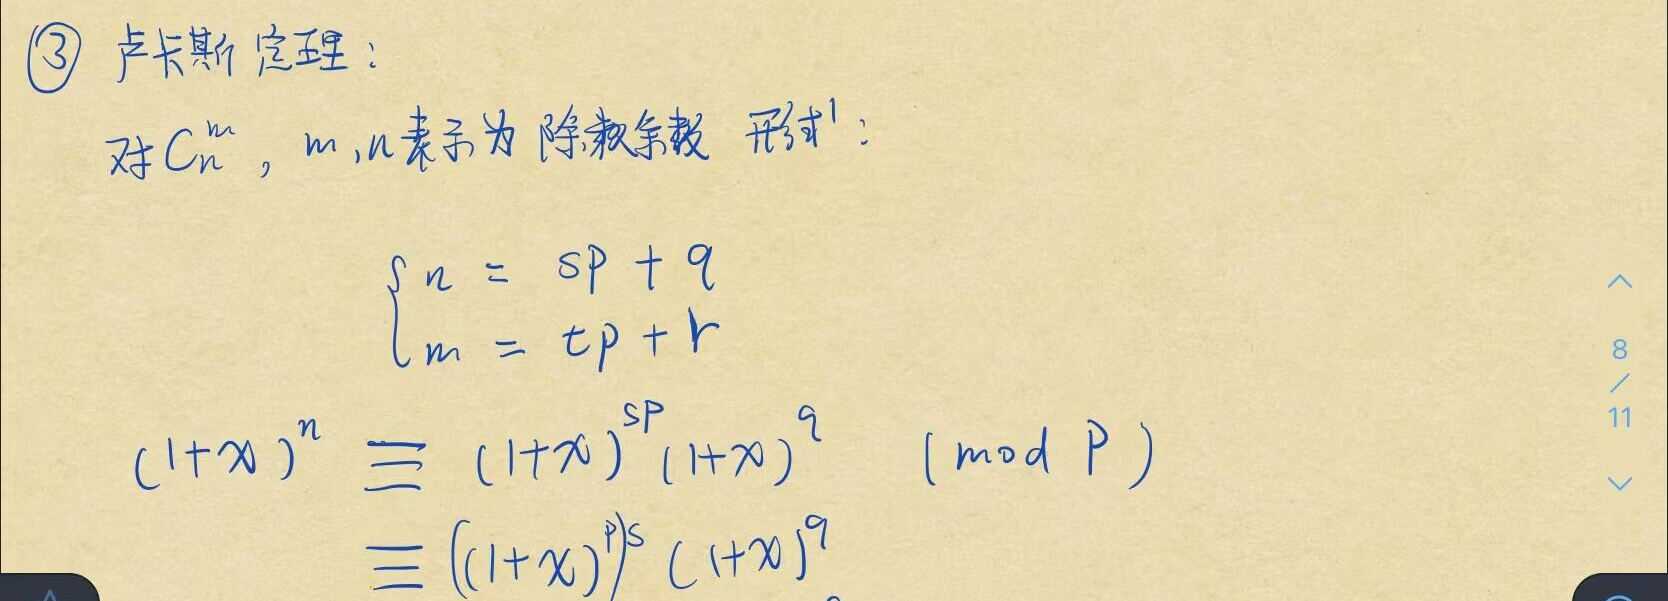 ③ 卢卡斯定理：
对 C_n^m，m,n表示为 除数余数 形式：
{ n = sp + q
m = tp + r
(1+x)^n ≡ (1+x)^{sp} (1+x)^q (mod P)
≡ ((1+x)^p)^s (1+x)^q
8
/
11